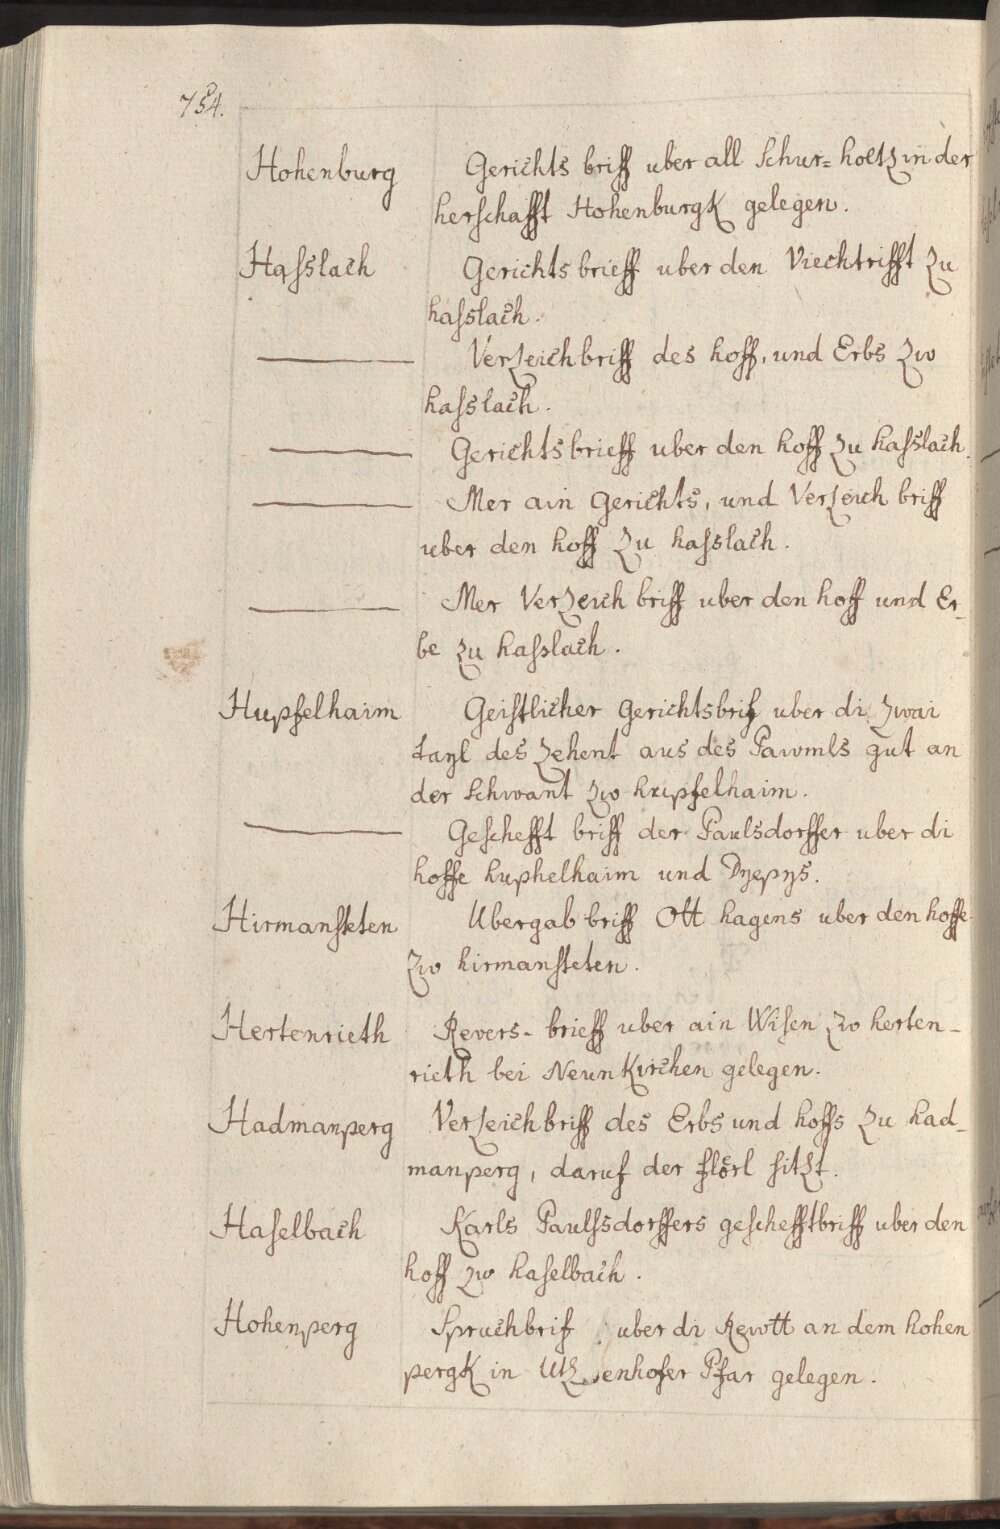 754.
Hohenburg Gerichts briff uber all Schur= holtz in der
herschafft Hohenburgk gelegen.
Hasslach Gerichts brieff uber den Viechtrifft zu
hasslach.
Verzeichbriff des hoff, und Erbs zw
hasslach.
Gerichts brieff uber den hoff zu hasslach.
Mer ain gerichts, und Verzeich briff
uber den hoff zu hasslach.
Mer Verzeich briff uber den hoff und Er-
be zu hasslach.
Hupfelhaim Geistlicher gerichtsbrif uber di zwai
tayl des zehent aus des Pawmls gut an
der Schwant zw hupfelhaim.
Geschefft briff der Paulsdorffer uber di
hoffe huphelhaim und Dyepys.
Hirmansteten Ubergab briff Ott hagens uber den hoffe
zw hirmansteten.
Hertenrieth Revers- brieff uber ain Wisen zw herten-
rieth bei Neunkirchen gelegen.
Hadmanperg Verzeichbriff des Erbs und hoffs zu had-
manperg, daruf der flörl sitzt.
Haselbach Karls Paulssdorffers geschefftbriff uber den
hoff zw haselbach.
Hohenperg Spruchbrif uber di Rewtt an dem hohen
pergk in Utzenhofer Pfar gelegen.